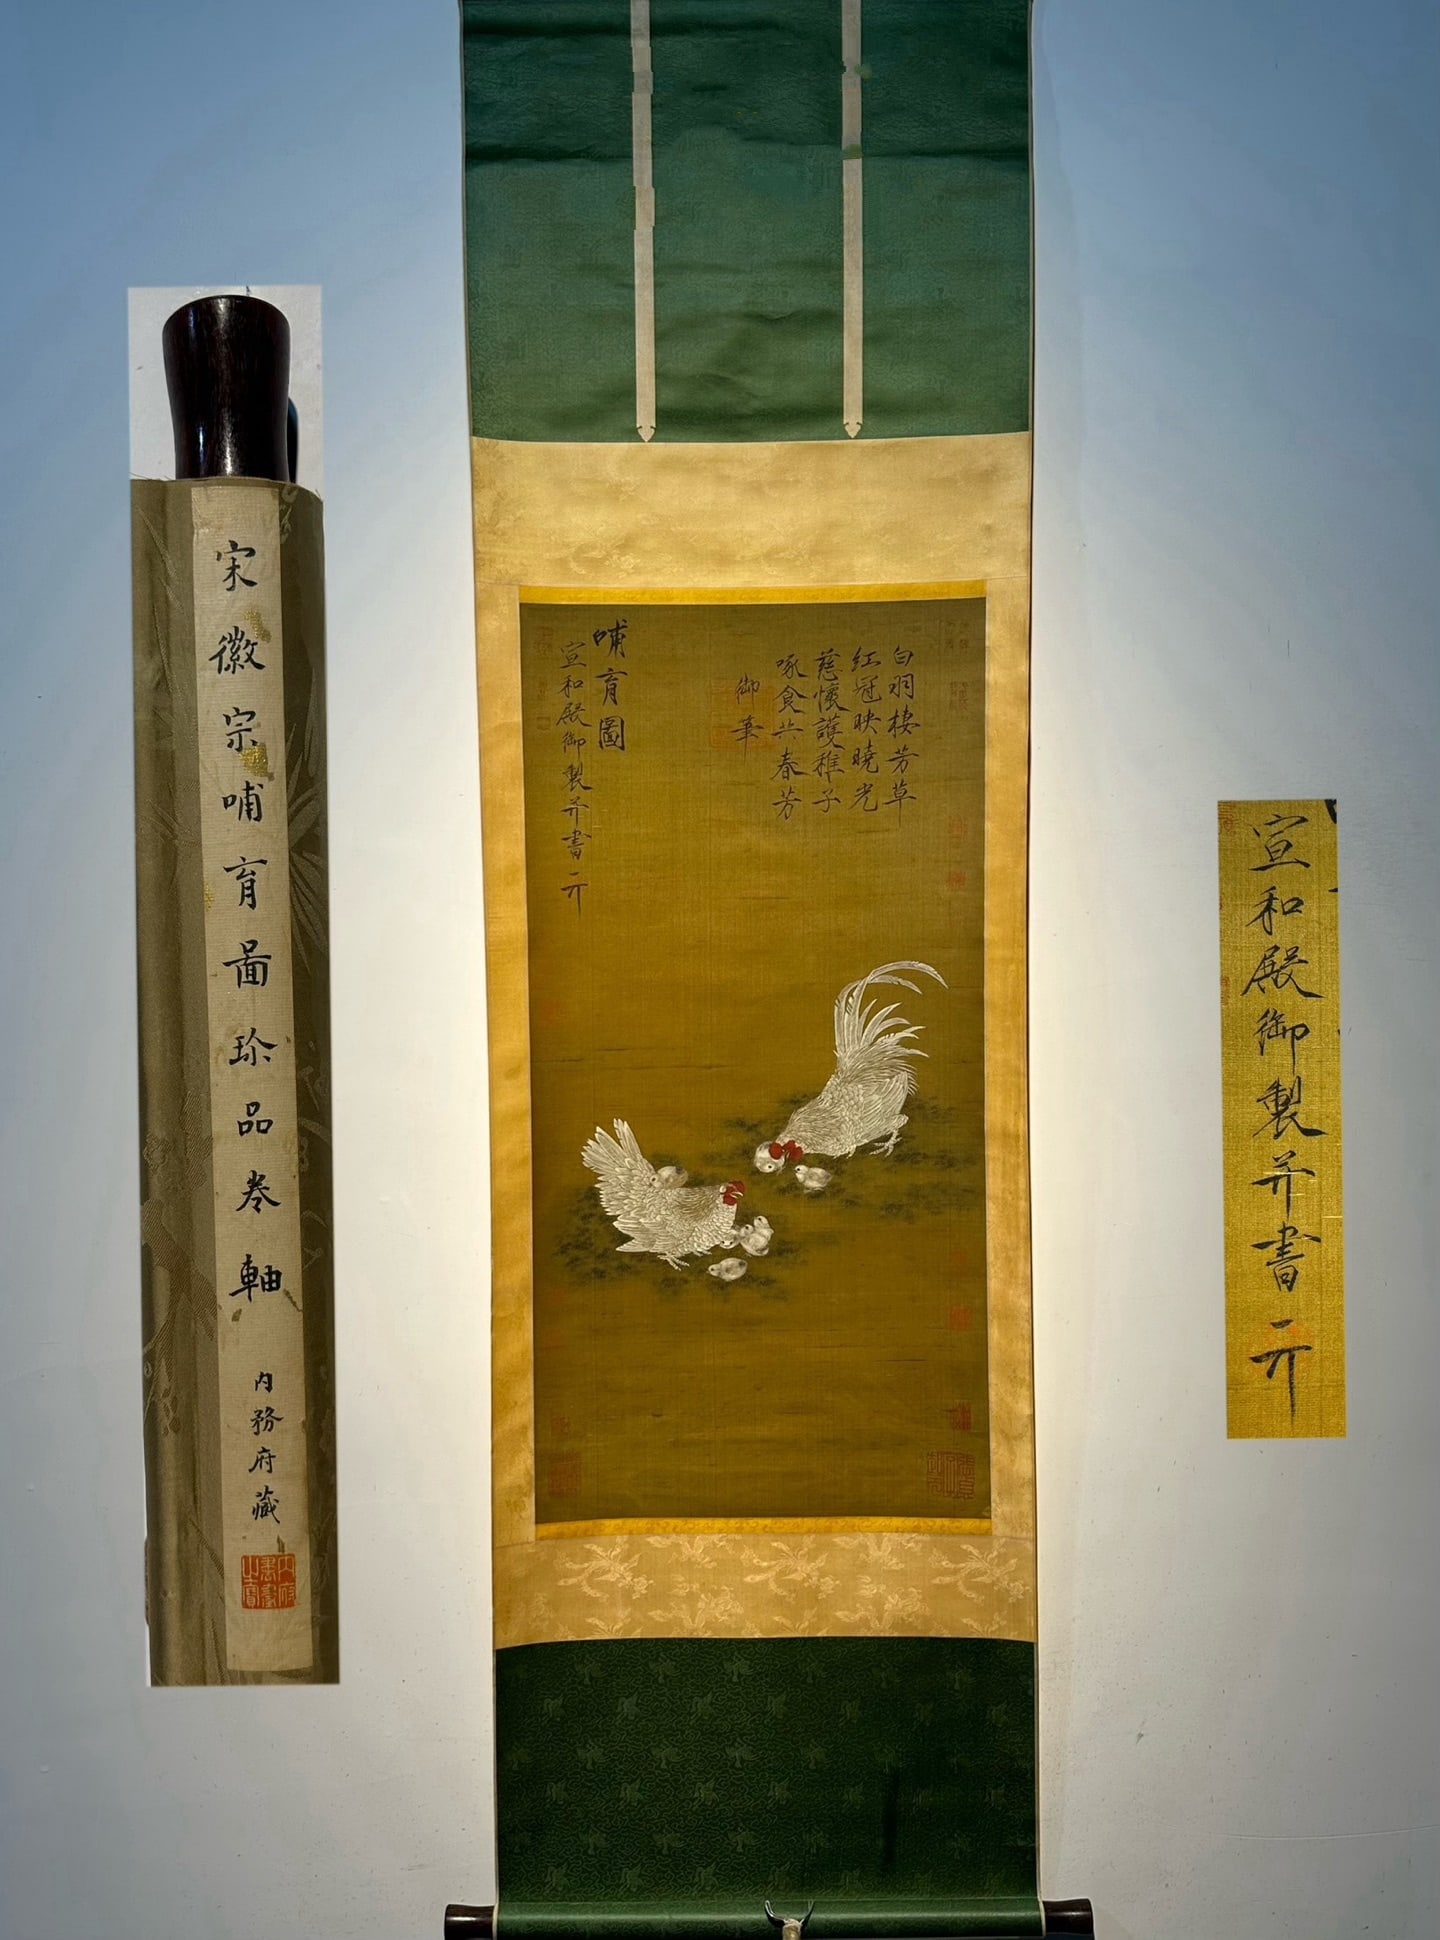 宋徽宗哺育圖珍品卷軸
内務府藏
内府書畫之寶
白羽棲芳草
紅冠映曉光
慈懷護稚子
啄食共春芳
御筆
哺育圖
宣和殿御製并書
宣和殿御製并書